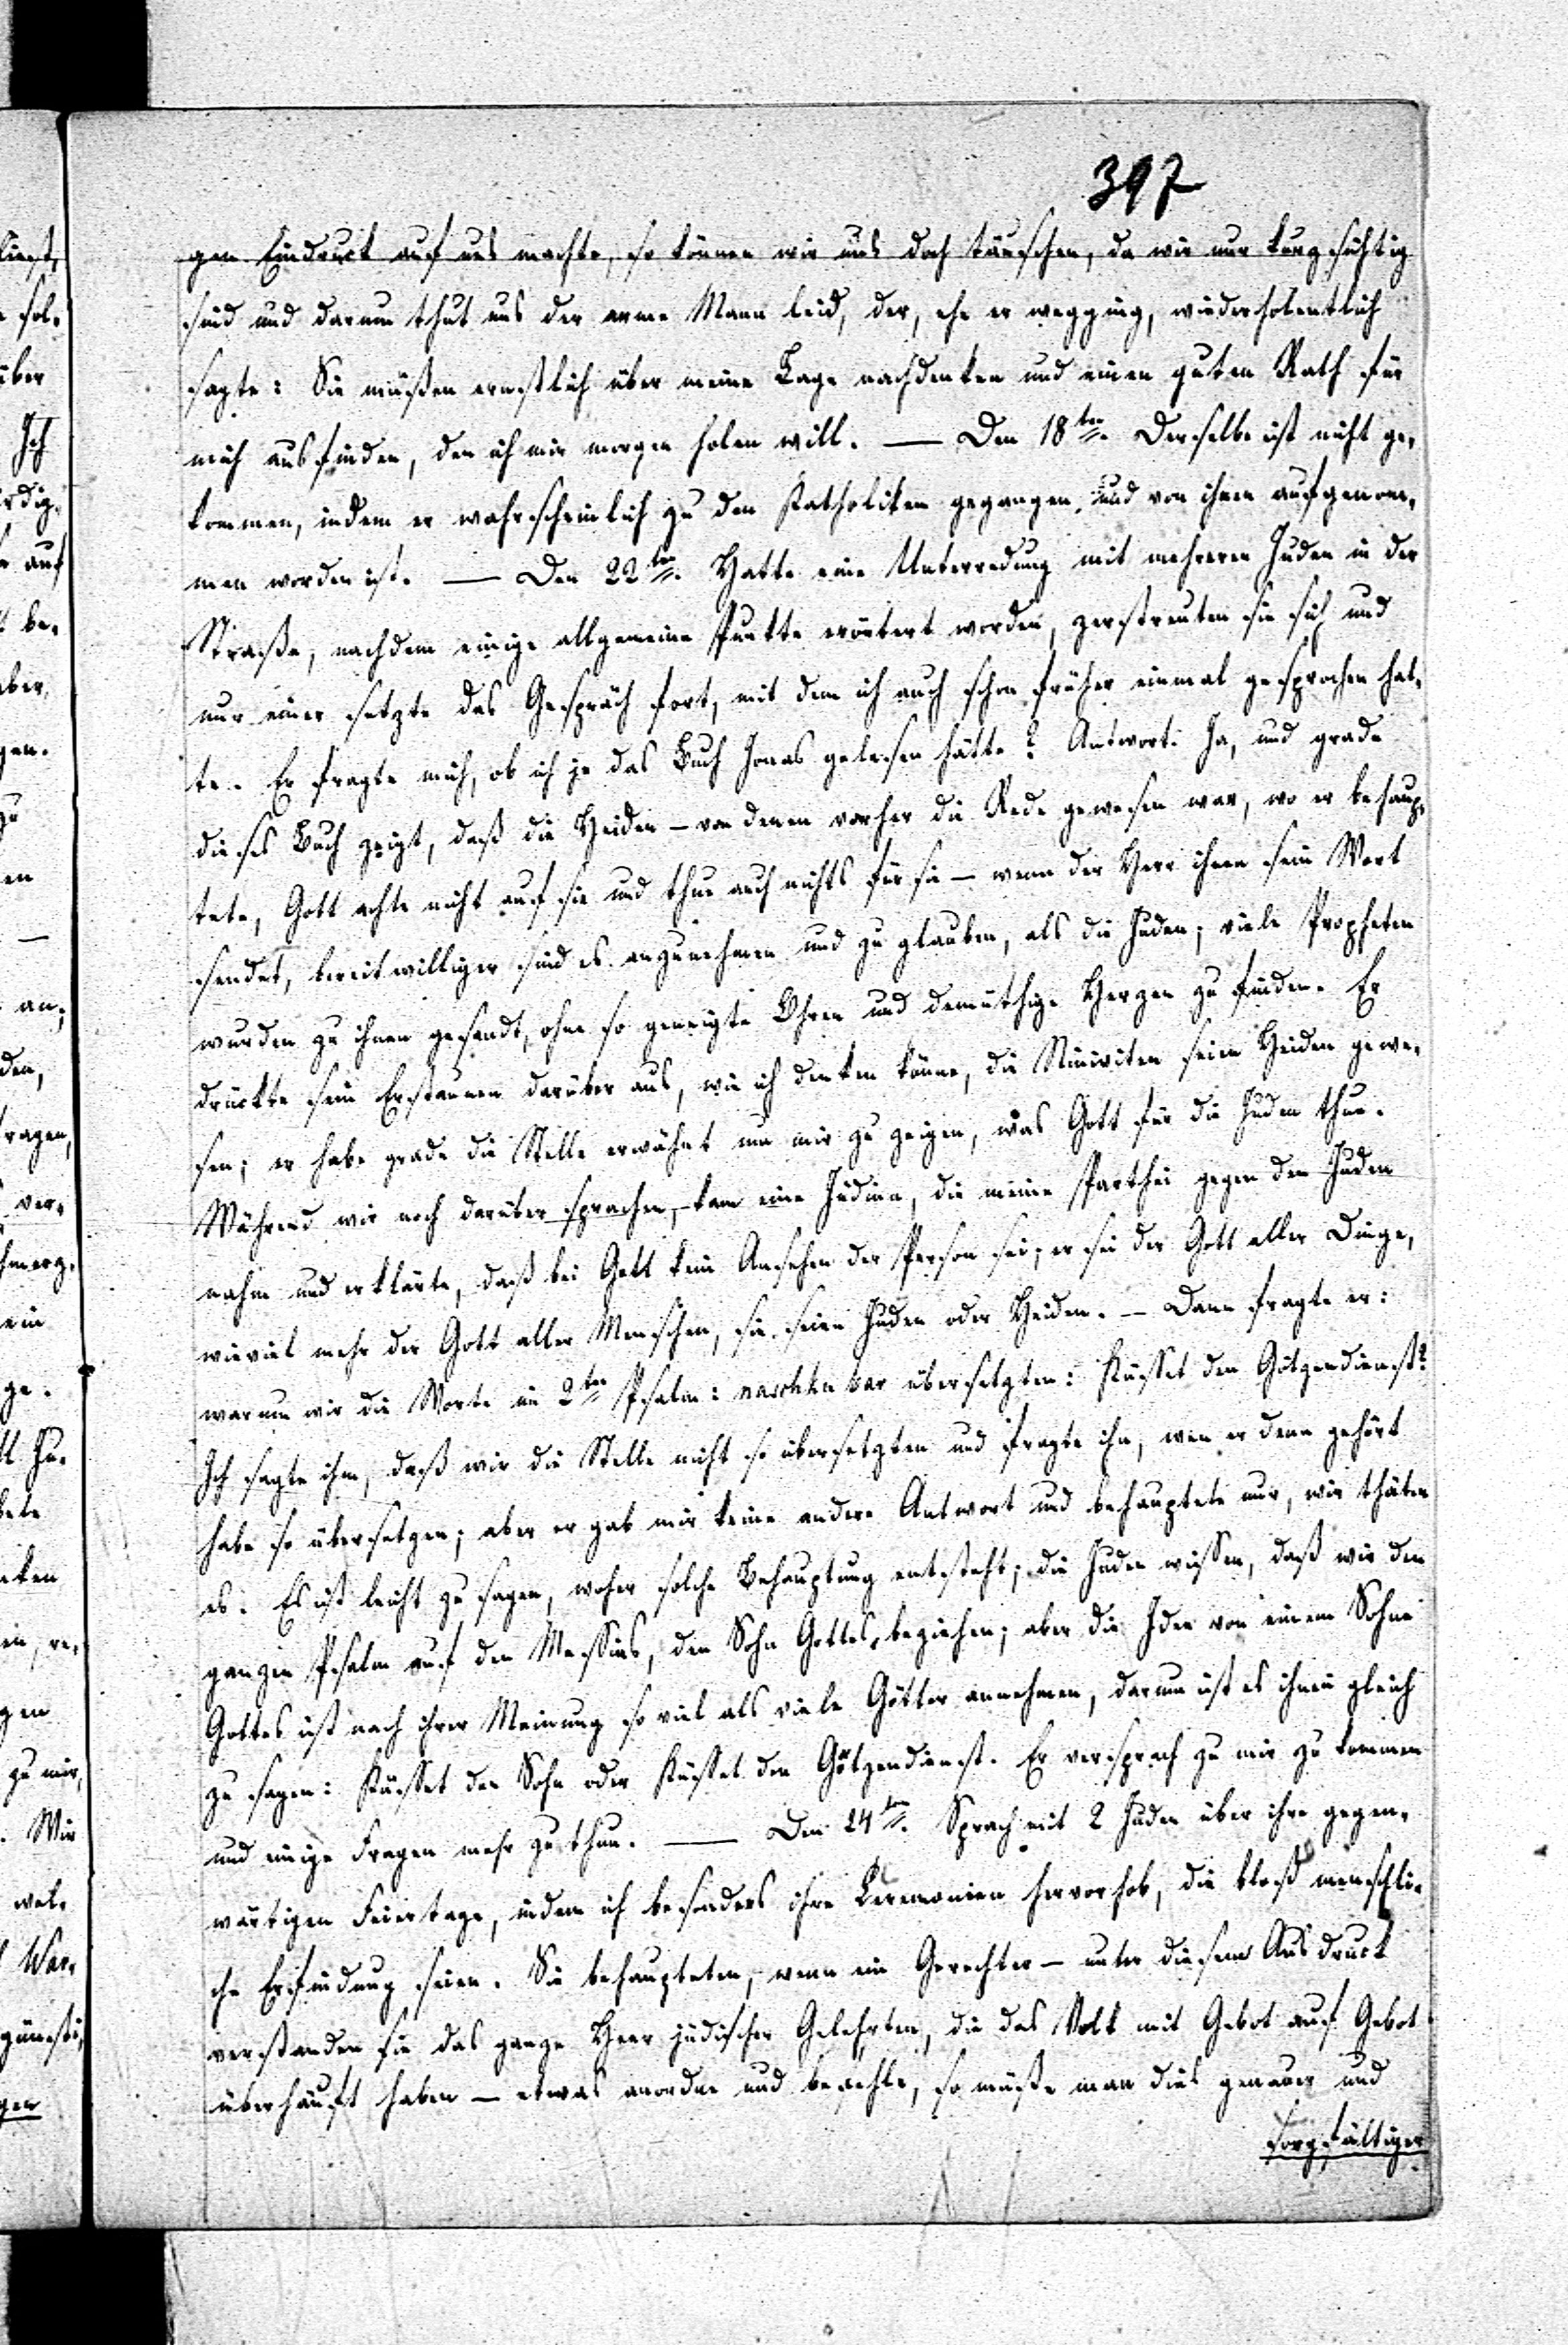 397
gen Eindruck auf uns machte, so können wir uns doch täuschen, da wir nur kurzsichtig
sind und darum thut uns der arme Mann leid, der, ehe er wegging, wiederholentlich
sagte: Sie müßen ernstlich über meine Lage nachdenken und einen guten Rath für
mich ausfinden, den ich mir morgen holen will. — Den 18ten. Derselbe ist nicht ge-
kommen, indem er wahrscheinlich zu den Katholiken gegangen und von ihnen aufgenom-
men worden ist. — Den 22ten. Hatte eine Unterredung mit mehreren Juden in der
Straße, nachdem einige allgemeine Punkte erörtert worden, zerstreuten sie sich und
nur einer setzte das Gespräch fort, mit dem ich auch schon früher einmal gesprochen hat-
te. Er fragte mich, ob ich je das Buch Jonas gelesen hätte? Antwort: Ja, und grade
dieses Buch zeigt, daß die Heiden – von denen vorher die Rede gewesen war, wo er behaup-
tete, Gott achte nicht auf sie und thue auch nichts für sie – wenn der Herr ihnen sein Wort
sendet, bereitwilliger sind es anzunehmen und zu glauben, als die Juden; viele Propheten
wurden zu ihnen gesandt, ohne so geneigte Ohren und demüthige Herzen zu finden. Er
drückte sein Erstaunen darüber aus, wie ich denken könne, die Niniviten seien Heiden gewe-
sen; er habe grade die Stelle erwähnt um mir zu zeigen, was Gott für die Juden thue.
Während wir noch darüber sprachen, kam eine Jüdinn, die meine Parthei gegen den Juden
nahm und erklärte, daß bei Gott kein Ansehen der Person sei, er sei der Gott aller Dinge,
wieviel mehr der Gott aller Menschen, sie seien Juden oder Heiden. – Dann fragte er:
warum wir die Worte im 2ten Psalm: naschku bar übersetzten: Küsset den Götzendienst?
Ich sagte ihm, daß wir die Stelle nicht so übersetzten und fragte ihn, wen er denn gehört
habe so übersetzen; aber er gab mir keine andere Antwort und behauptete nur, wir thäten
es. Es ist leicht zu sagen, woher solche Behauptung entsteht; die Juden wissen, daß wir den
ganzen Psalm auf den Messias, den Sohn Gottes, beziehen; aber die Idee von einem Sohne
Gottes ist nach ihrer Meinung so viel als viele Götter annehmen, darum ist es ihnen gleich
zu sagen: Küsset den Sohn oder Küsset den Götzendienst. Er versprach zu mir zu kommen
und einige Fragen mehr zu thun. — Den 24ten. Sprach mit 2 Juden über ihre gegen-
wärtigen Feiertage, indem ich besonders ihre Ceremonien hervorhob, die bloß menschli-
che Erfindung seien. Sie behaupteten, wenn ein Gerechter – unter diesem Ausdruck
verstanden sie das ganze Heer jüdischer Gelehrten, die das Volk mit Gebot auf Gebot
überhäuft haben – etwas anordne und befehle, so müße man dies genauer und
sorgfältiger